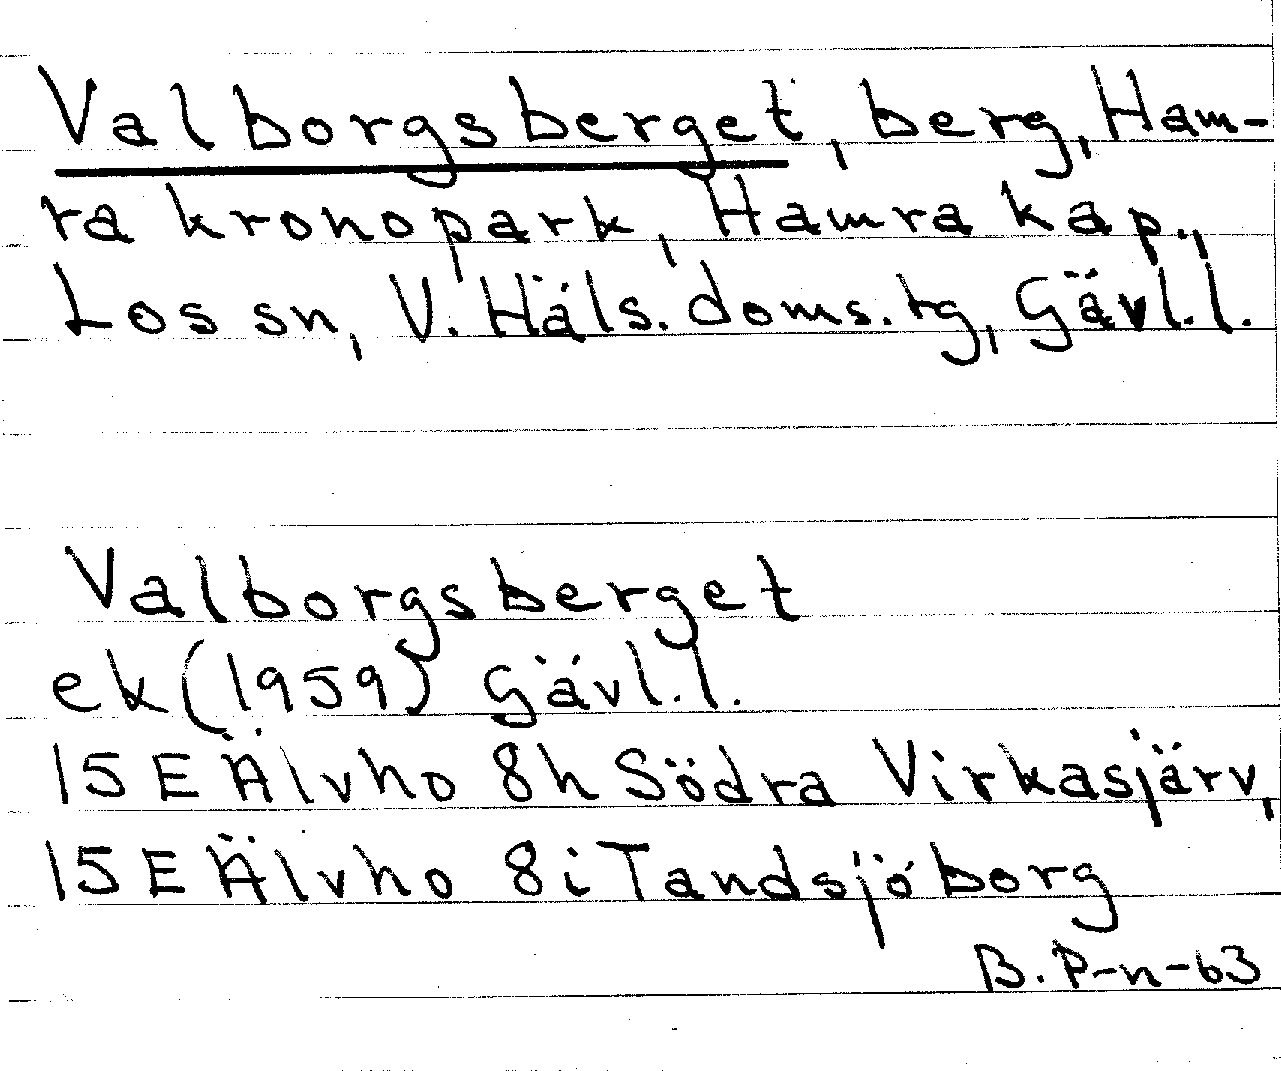 Valborgsberget, berg, Ham-
ra kronopark, Hamra kap.,
Los sn, V. Häls. doms. tg, Gävl.l.
Valborgsberget
ek (1959) Gävl.l.
15E Älvho 8h Södra Virkasjärv,
15E Älvho 8i Tandsjöborg
B. P-n-63